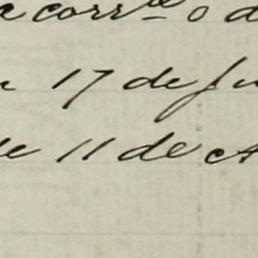 corr.te o d
17 de Ju
de 11 de A